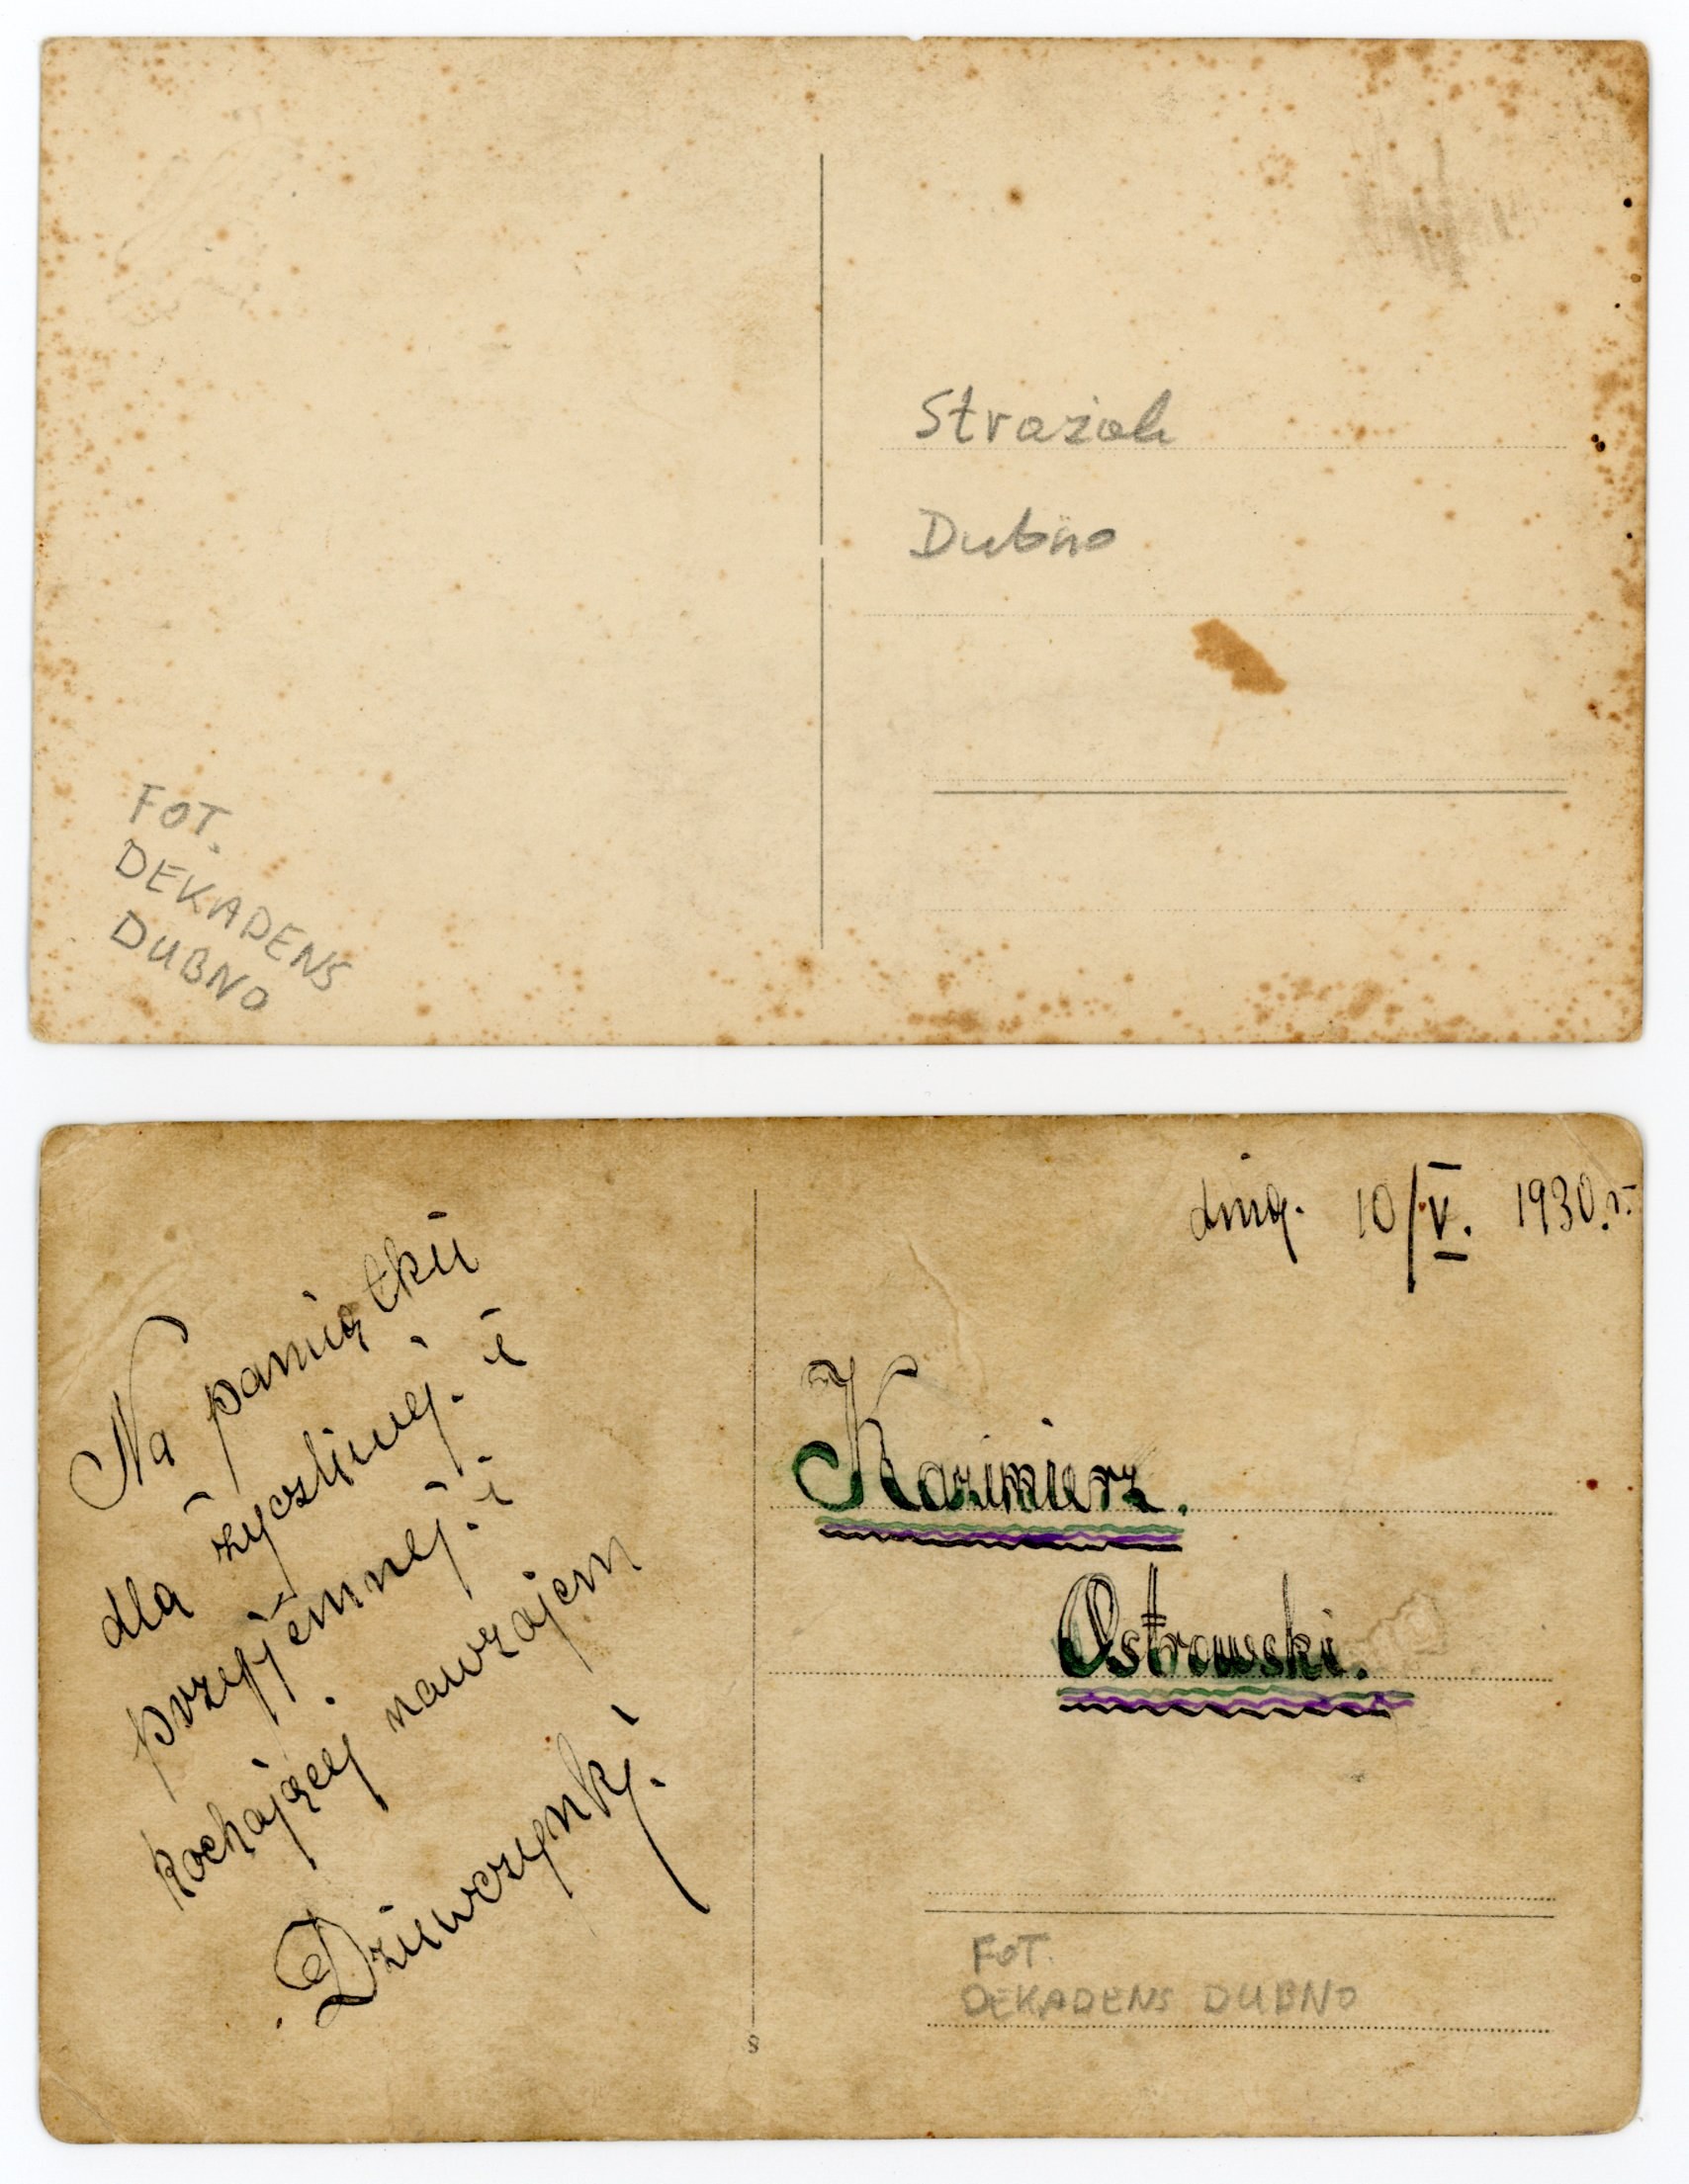 Strażak
Dubno
FOT.
DEKADENS
DUBNO
dnia. 10/V. 1930.r.
Na pamiątkū
dla życzliwej. i
przyjemnej. i
kochającej nawzajem
Dziewczynki.
Kazimierz.
Ostrowski.
FOT.
DEKADENS DUBNO
8